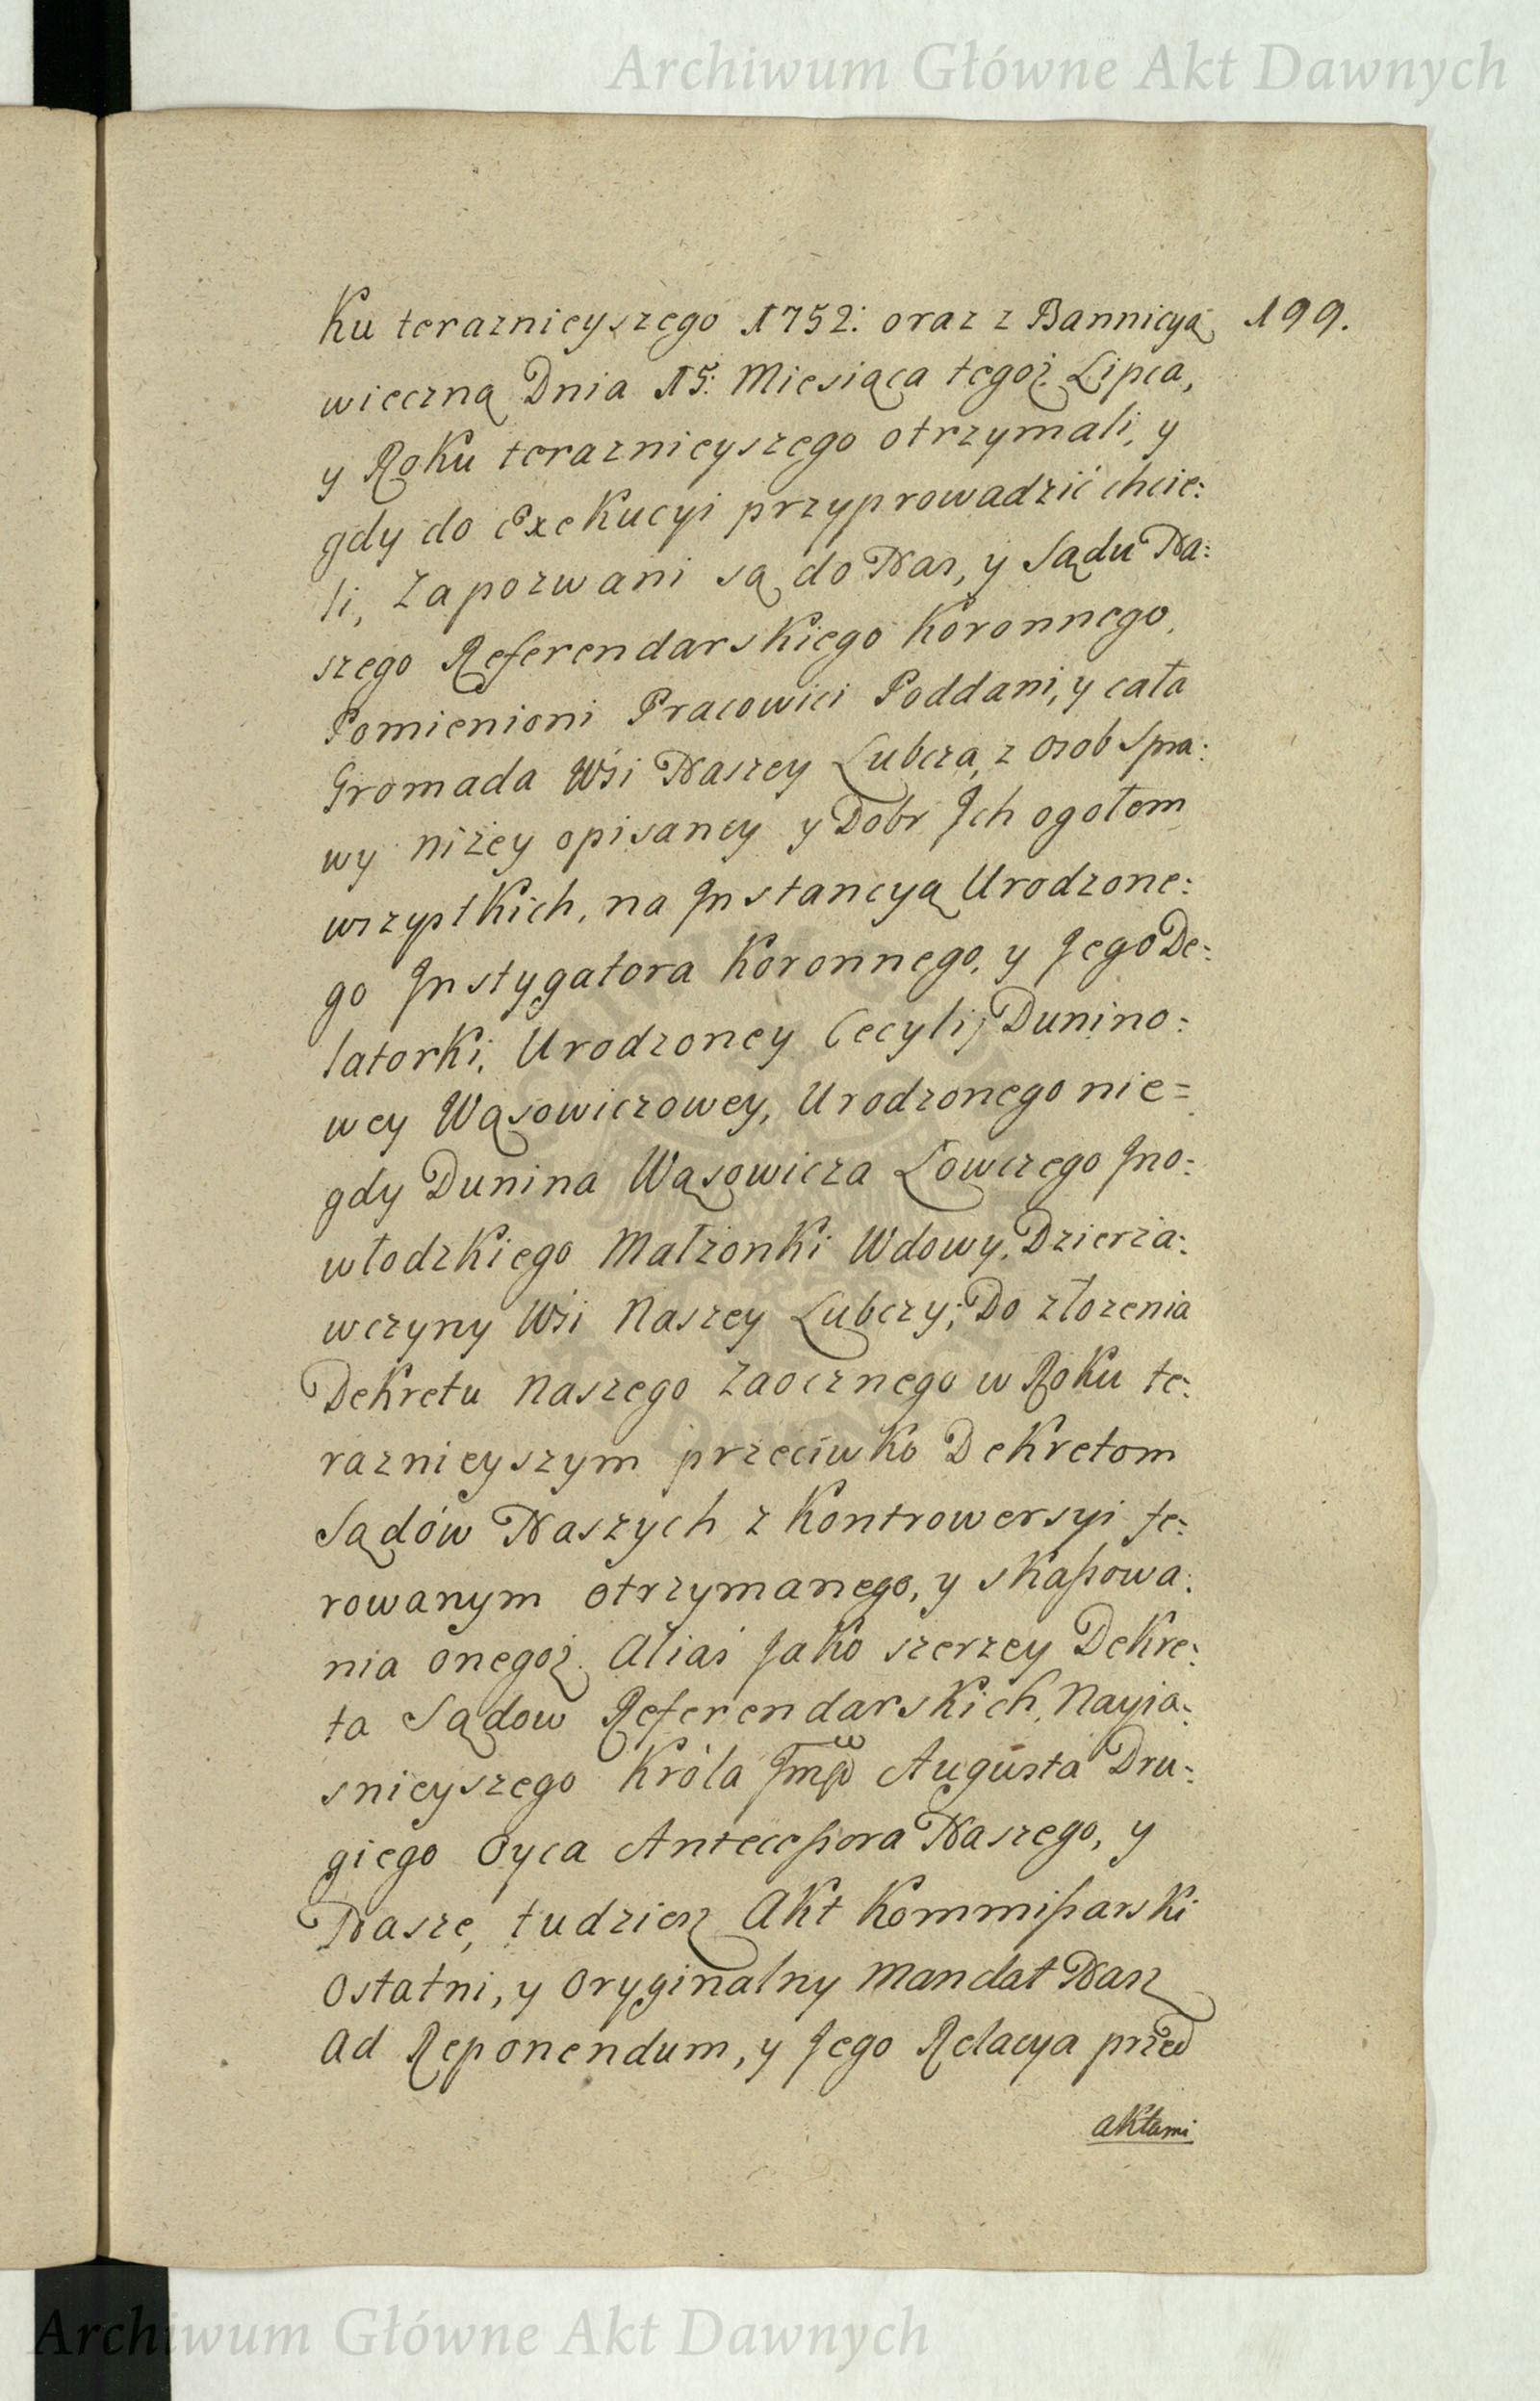 Archiwum Główne Akt Dawnych
Ku teraznieyszego 1752: oraz z Bannicyą 199.
wieczną Dnia 15: Miesiąca tegoż Lipca,
y Roku teraznieyszego otrzymali, y
gdy do Exekucyi przyprowadzić chcie:
li, Zapozwani są do Nas, y Sądu Na:
szego Referendarskiego Koronnego,
Pomienioni Pracowici Poddani, y cała
Gromada Wsi Naszey Lubcza, z osob spra:
wy niżey opisaney y Dobr Ich ogołem
wszystkich, na Instancyą Urodzone:
go Instygatora Koronnego, y Jego De:
latorki, Urodzoney Cecylij Dunino:
wey Wąsowiczowey, Urodzonego nie=
gdy Dunina Wąsowicza Łowczego Ino:
włodzkiego Małżonki Wdowy, Dzierża:
wczyny Wsi Naszey Lubczy; Do złożenia
Dekretu Naszego Zaocznego w Roku te:
raznieyszym przeciwko Dekretom
Sądów Naszych z Kontrowersyi fe:
rowanym otrzymanego, y skassowa:
nia onegoż. Alias Jako szerzey Dekre:
ta Sądow Referendarskich, Nayia:
snieyszego Króla Jmści Augusta Dru:
giego Oyca Antecessora Naszego, y
Nasze, tudziesz Akt Kommissarski
Ostatni, y Oryginalny Mandat Nasz
Ad Reponendum, y Jego Relacya przed
aktami
Archiwum Główne Akt Dawnych